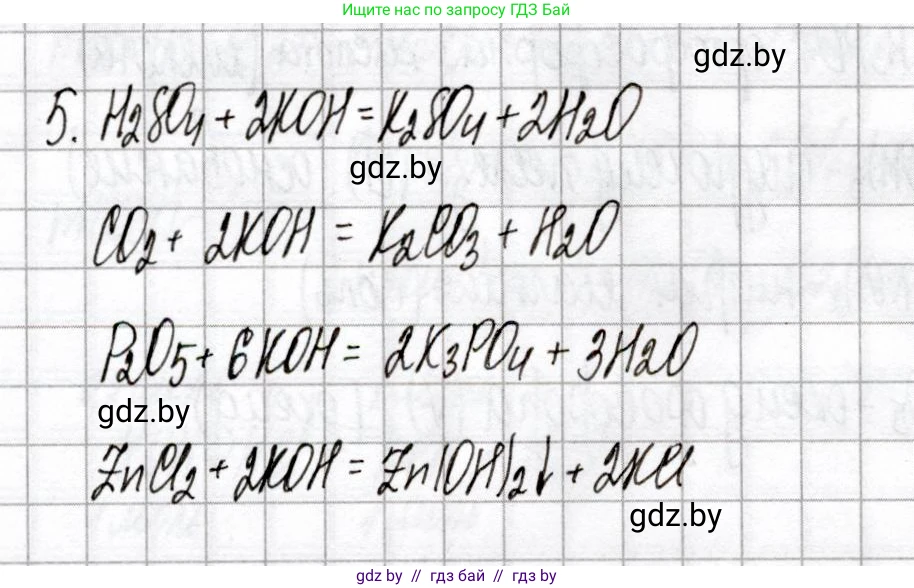 Ищите нас по запросу ГДЗ Бай
gdz.by
5. H₂SO₄ + 2KOH = K₂SO₄ + 2H₂O
gdz.by
CO₂ + 2KOH = K₂CO₃ + H₂O
P₂O₅ + 6KOH = 2K₃PO₄ + 3H₂O
gdz.by
ZnCl₂ + 2KOH = Zn(OH)₂↓ + 2KCl
gdz.by
gdz.by // гдз бай // гдз by